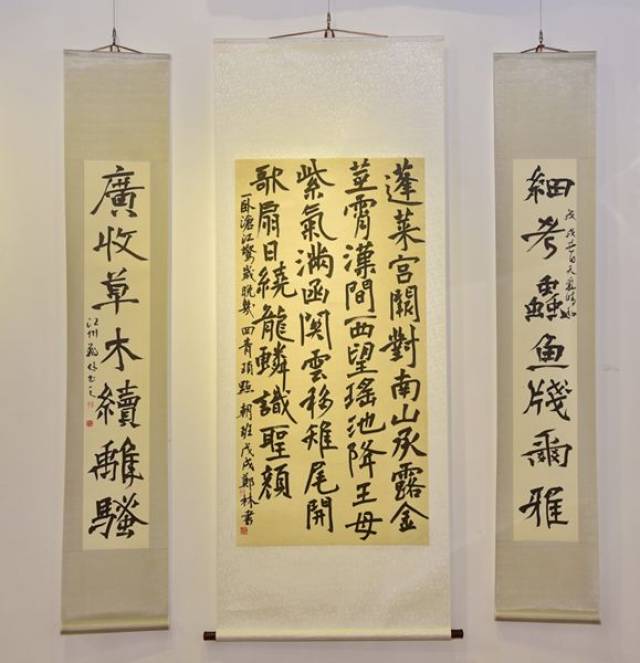 細考蟲魚牋爾雅
戊戌
蓬萊宮闕對南山承露金
莖霄漢間西望瑤池降王母
紫氣滿函関雲移雉尾開
歌扇日繞龍鱗識聖顏
一卧滄江驚歲晚幾回青瑣點朝班戊戌鄭林書
廣收草木續離騷
江州